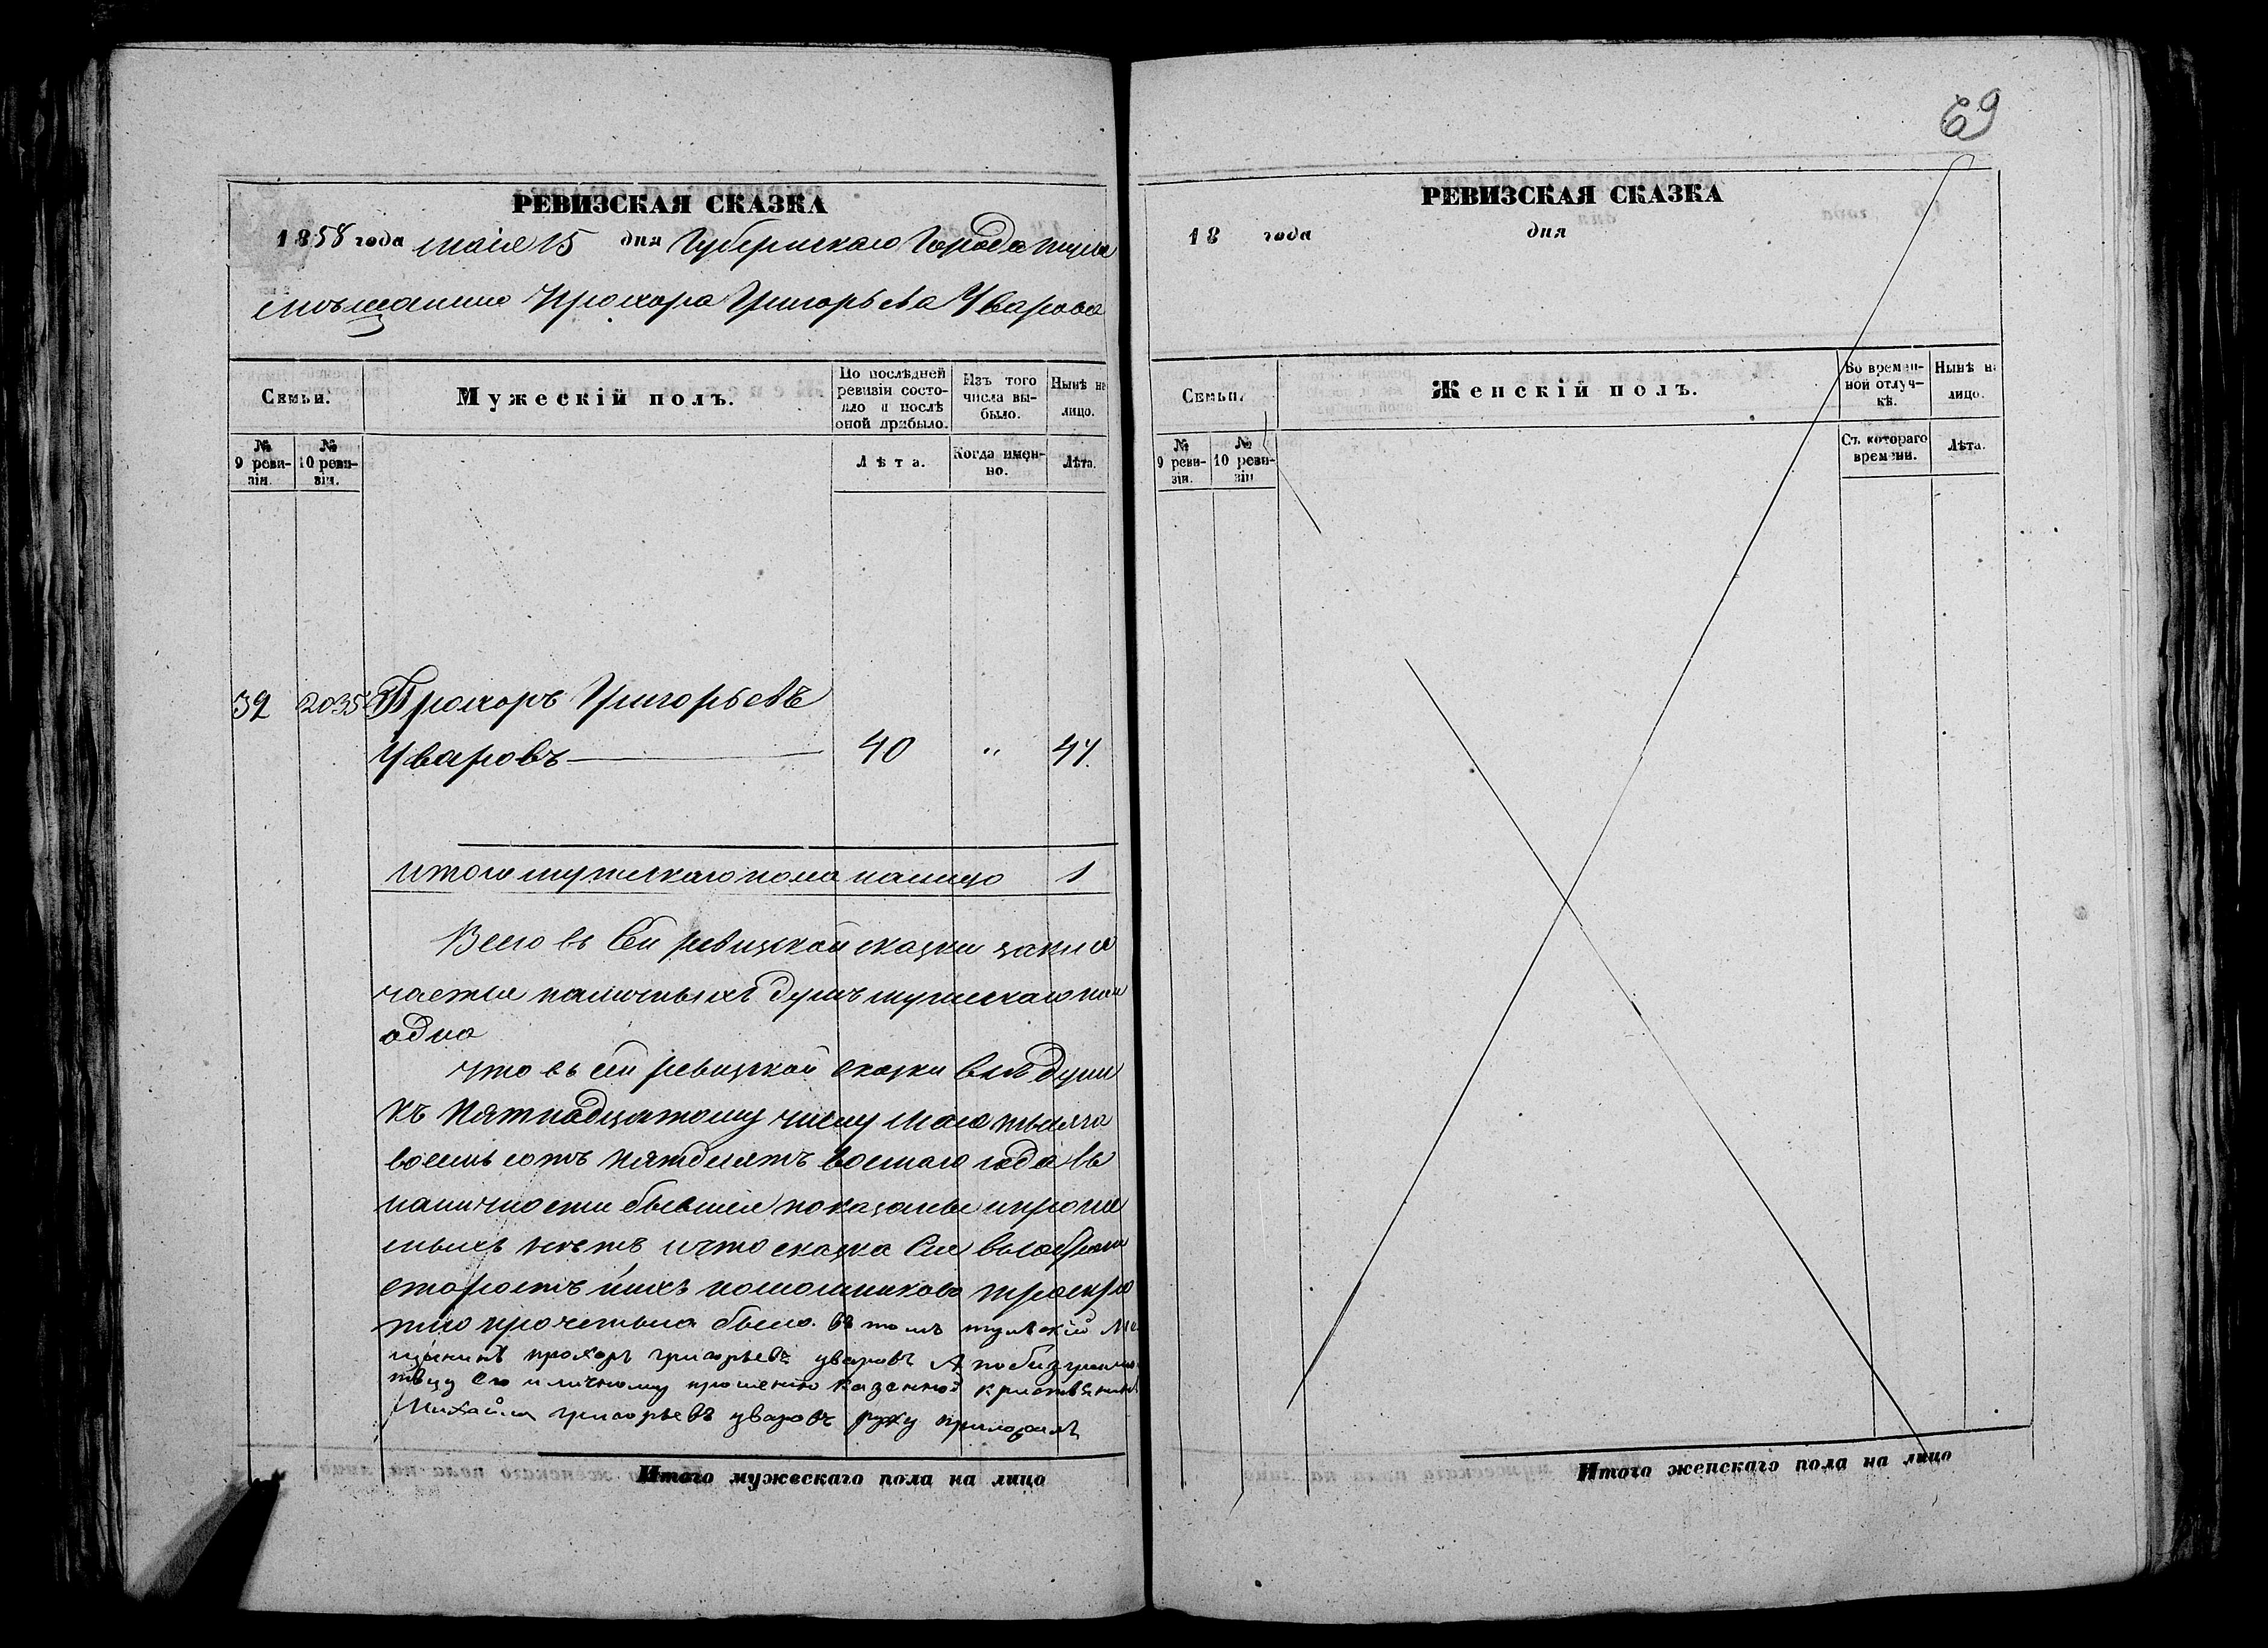 РЕВИЗСКАЯ СКАЗКА
1858 года маія 15 дня Губернскаго Города тулы
мѣщанина Прохора Григорьева Уварова
Семьи.
Мужескій полъ.
По послѣдней ревизіи состояло и послѣ оной прибыло.
Изъ того числа выбыло.
Нынѣ на лицо.
№ 9 ревизіи.
№ 10 ревизіи.
Лѣта.
Когда именно.
Лѣта.
39 2035 Прохоръ Григорьевъ
Уваровъ 40 " 47.
итого мужескаго пола налицо 1
Всего въ Сей ревизской сказки заклю
чается наличныхъ душъ мужескаго пол
одна
что въ сей ревизской сказки всѣ души
къ пятнадцатому числу мая тысяча
восемь сотъ пятдесятъ восмаго года въ
наличности бывшіе показаны и
нѣтъ и что сказка Сия
старостъ ихъ помошниковъ
прочетына была. въ томъ тулскій ме
щининъ прохоръ григорьевъ уваровъ А
его и личному прошению казенной
Михайла григорьевъ уваровъ руку приложилъ
Итого мужескаго пола на лицо
69
РЕВИЗСКАЯ СКАЗКА
18 года дня
Семьи.
Женскій полъ.
Во временной отлучкѣ.
Нынѣ на лицо.
№ 9 ревизіи.
№ 10 ревизіи
Съ котораго времени.
Лѣта.
Итого женскаго пола на лицо